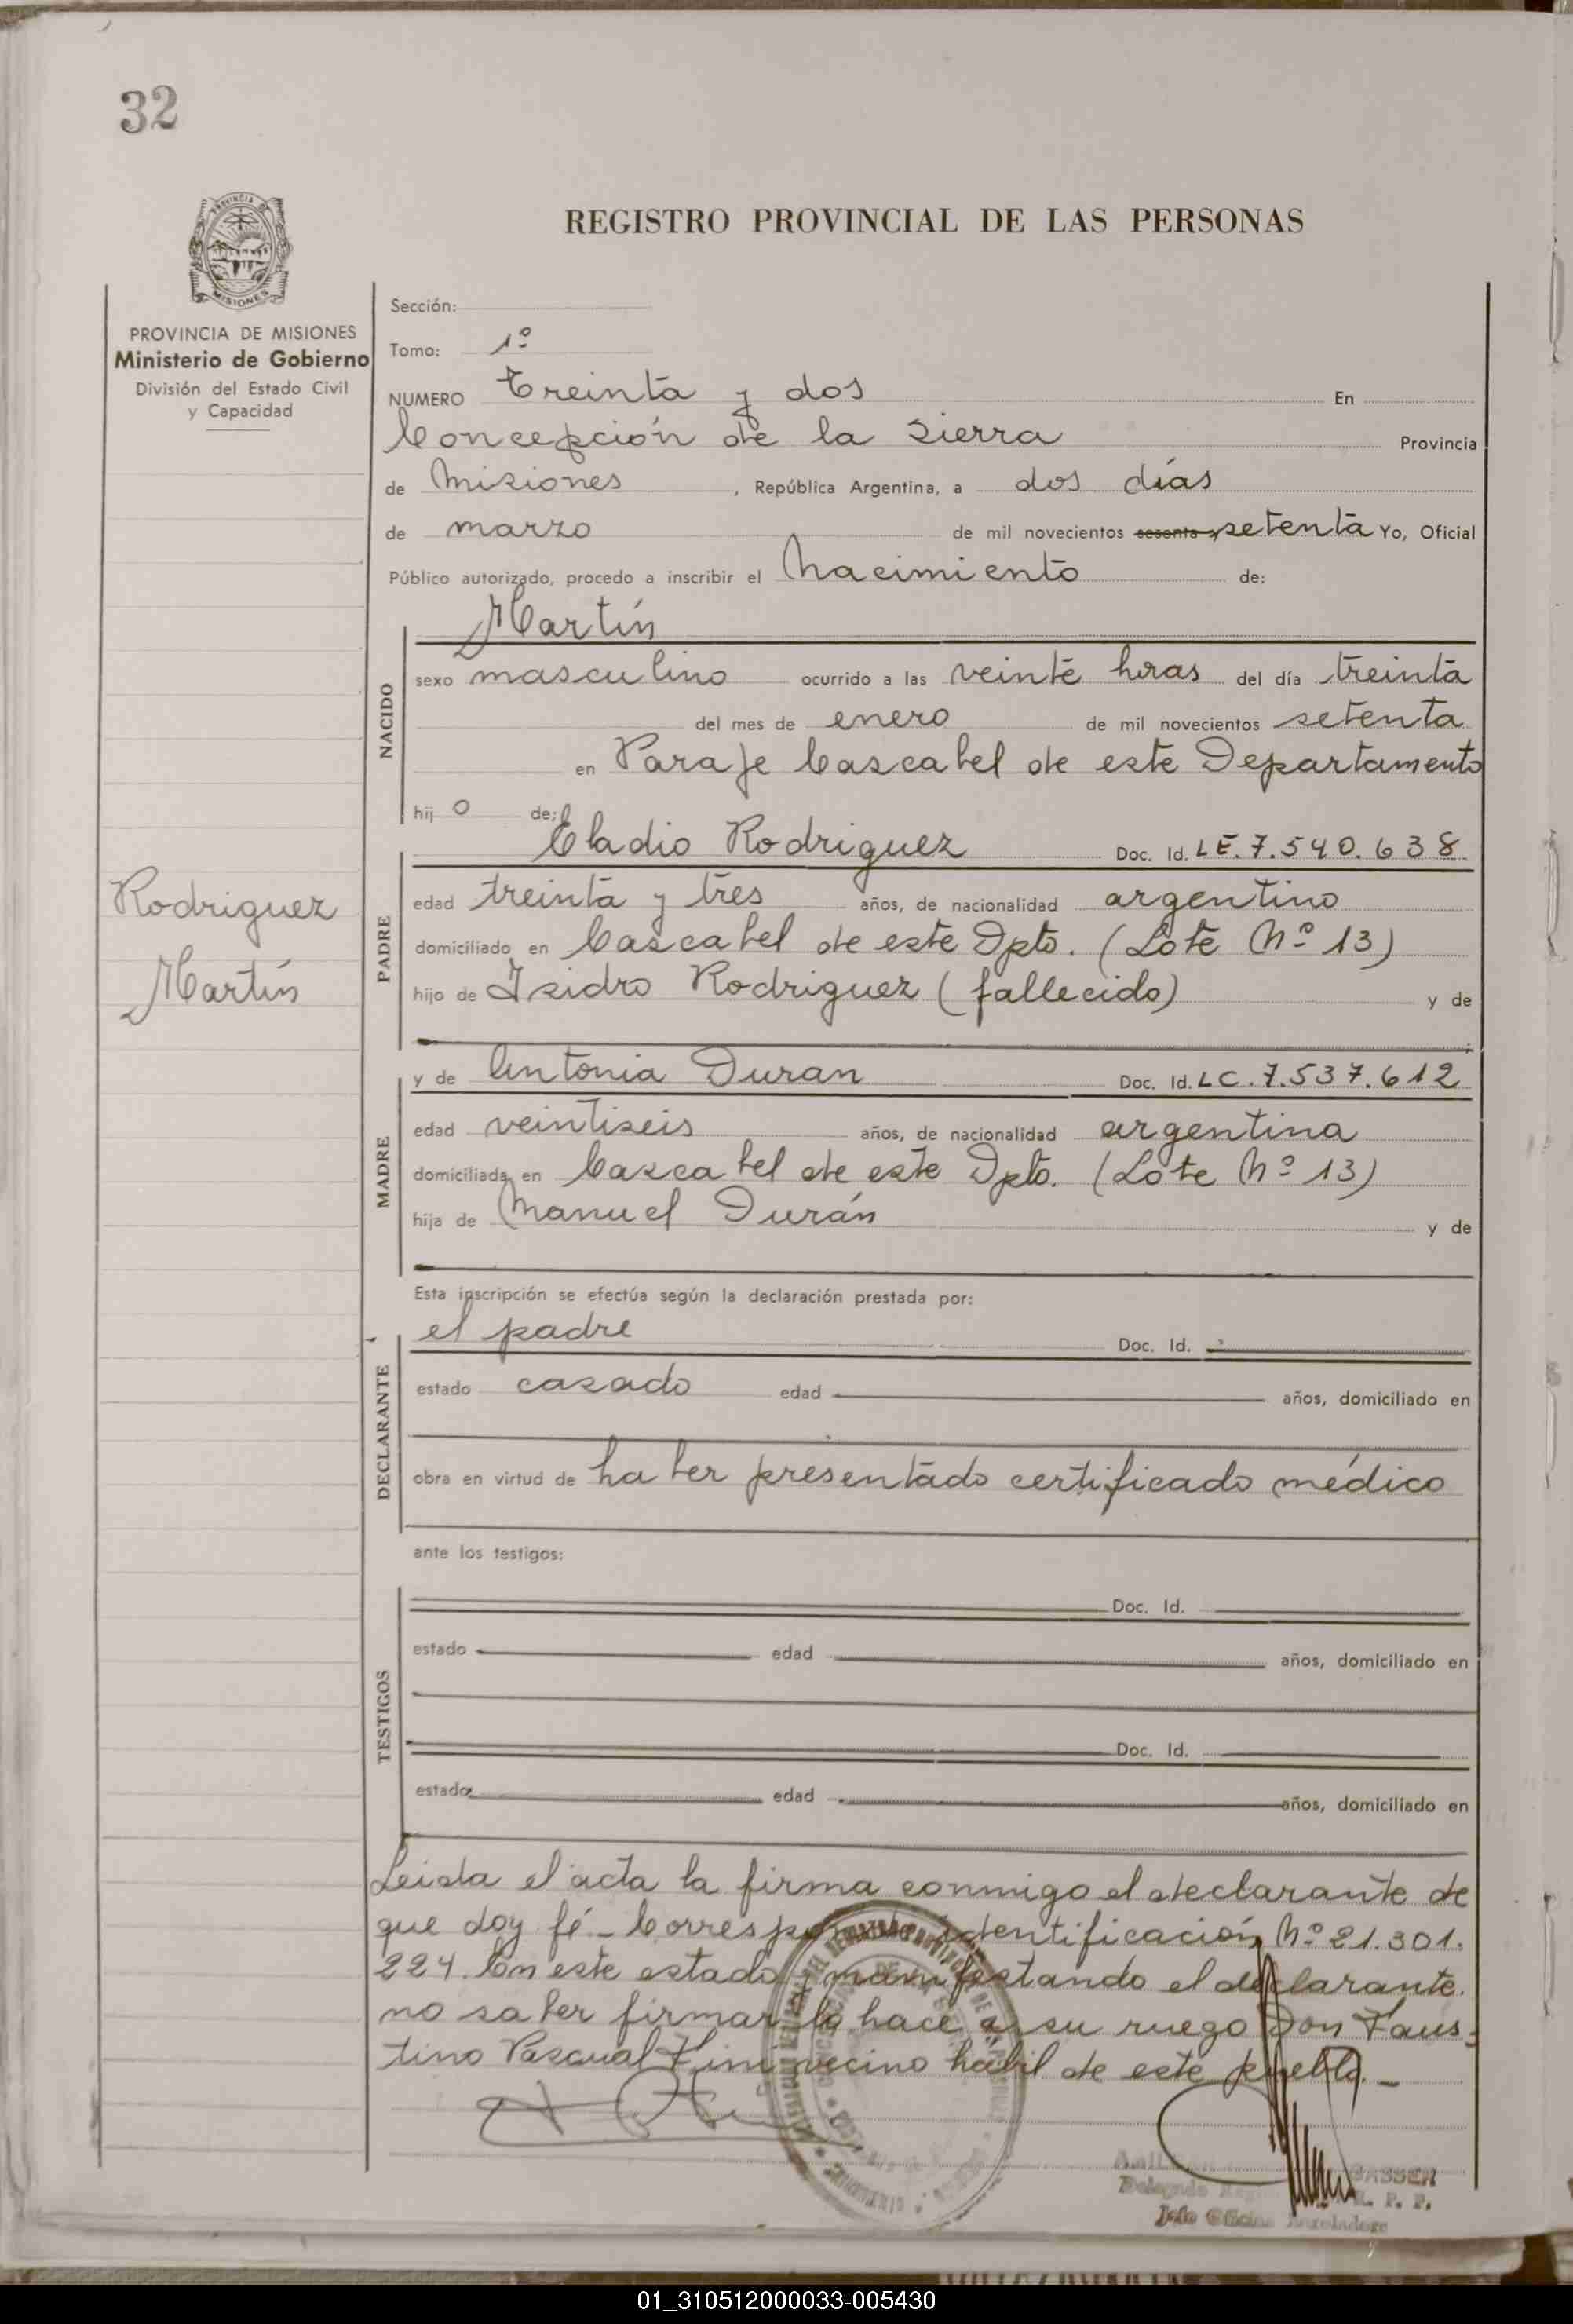 32
REGISTRO PROVINCIAL DE LAS PERSONAS
PROVINCIA DE MISIONES
Ministerio de Gobierno
División del Estado Civil
y Capacidad
Sección:
Tomo: 1º
NUMERO treinta y dos En
Concepción de la Sierra Provincia
de Misiones, República Argentina, a dos días
de marzo de mil novecientos sesenta y setenta Yo, Oficial
Público autorizado, procedo a inscribir el Nacimiento de:
Martín
NACIDO
sexo masculino ocurrido a las veinte horas del día treinta
del mes de enero de mil novecientos setenta
en Paraje Cascabel de este Departamento
hijo de;
Eladio Rodriguez Doc. Id. LE.7.540.638
Rodriguez
Martín
PADRE
edad treinta y tres años, de nacionalidad argentino
domiciliado en Cascabel de este Dpto. (Lote Nº 13)
hijo de Isidro Rodriguez (fallecido) y de
MADRE
y de Antonia Duran Doc. Id. LC.7.537.612
edad veintiseis años, de nacionalidad argentina
domiciliada en Cascabel de este Dpto. (Lote Nº 13)
hija de Manuel Durán y de
Esta inscripción se efectúa según la declaración prestada por:
DECLARANTE
el padre Doc. Id.
estado casado edad años, domiciliado en
obra en virtud de haber presentado certificado médico
ante los testigos:
TESTIGOS
Doc. Id.
estado edad años, domiciliado en
Doc. Id.
estado edad años, domiciliado en
Leida el acta la firma conmigo el declarante de
que doy fé.- Corresponde identificación Nº 21.301.
224. En este estado, manifestando el declarante
no saber firmar lo hace a su ruego Don Faus=
tino Pascual Fini vecino habil de este pueblo.-
GASSEN
Delegado R. P. P.
Jefe Oficina
01_310512000033-005430